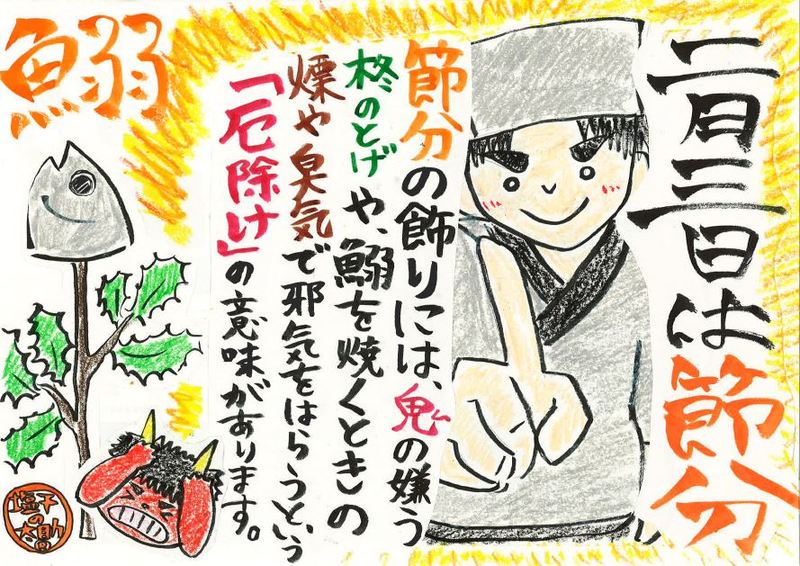 二月三日は節分
節分の飾りには、鬼の嫌う
柊のとげや、鰯を焼くときの
煙や臭気で邪気をはらうという
「厄除け」の意味があります。
鰯
塩干の